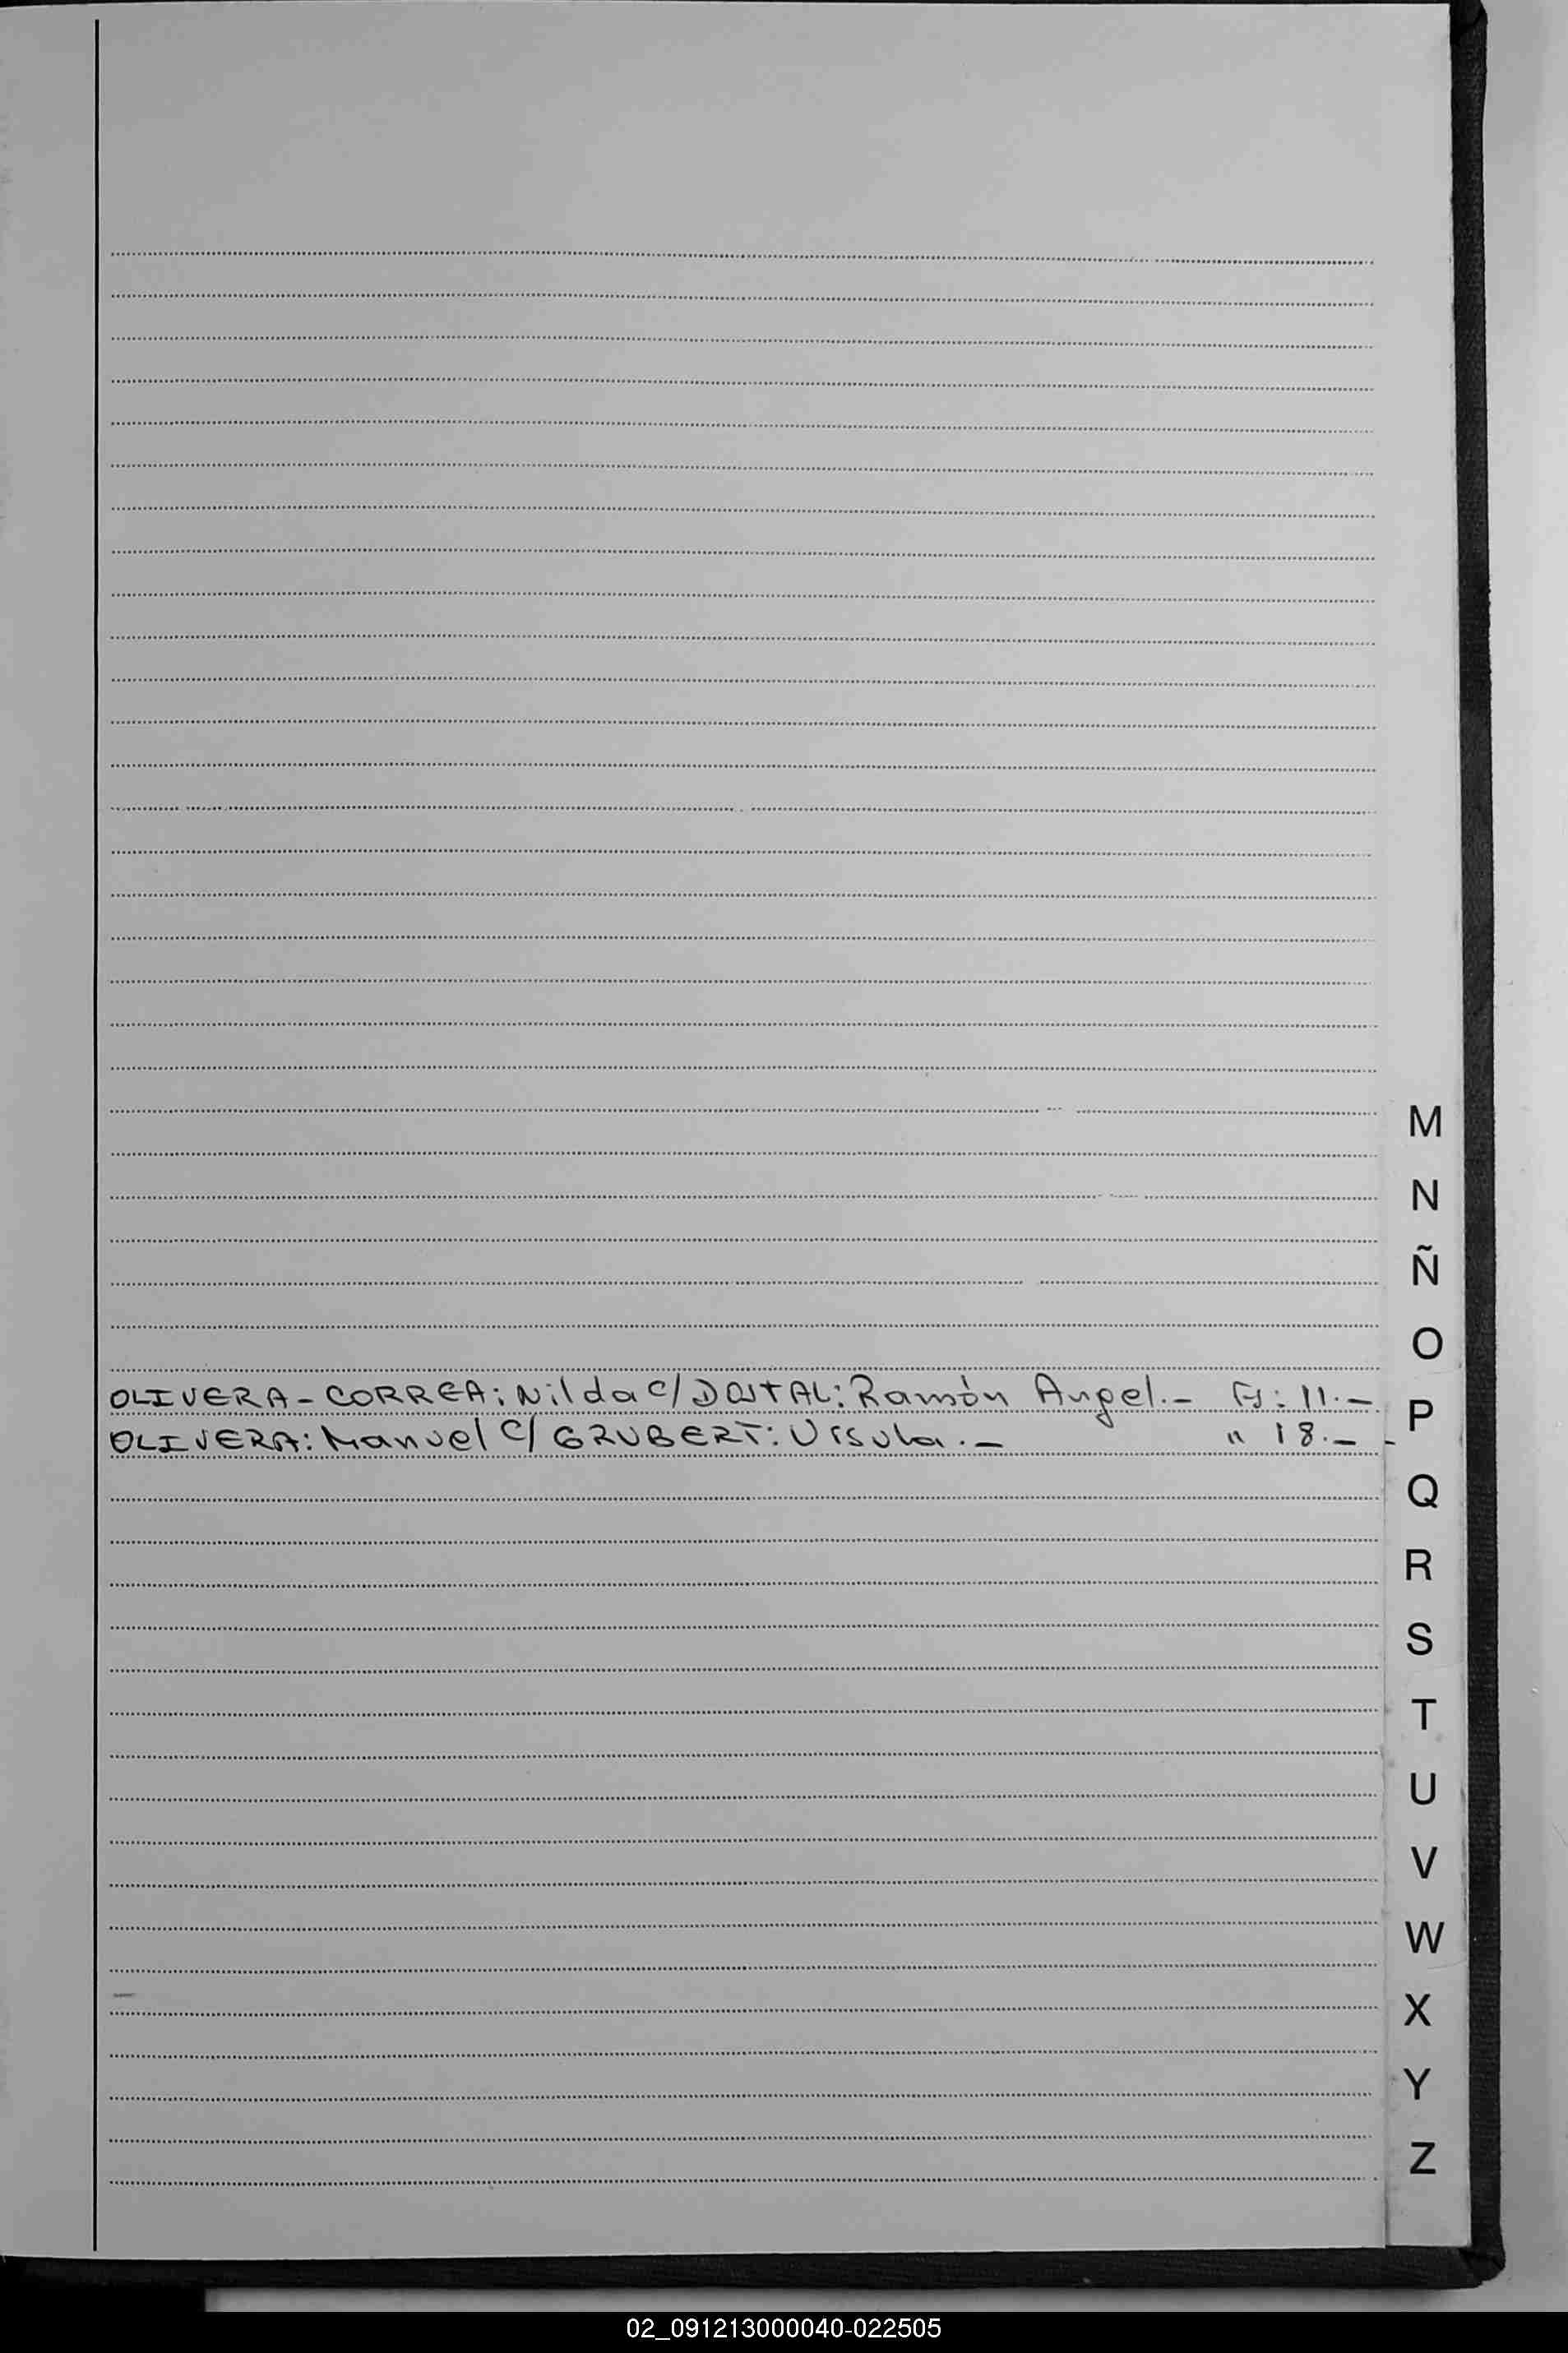 M
N
Ñ
O
OLIVERA-CORREA: Nilda c/ DOSTAL: Ramón Angel.- Fs: 11.-
P
OLIVERA: Manuel c/ GRUBERT: Ursula.- " 18.-
Q
R
S
T
U
V
W
X
Y
Z
02_091213000040-022505